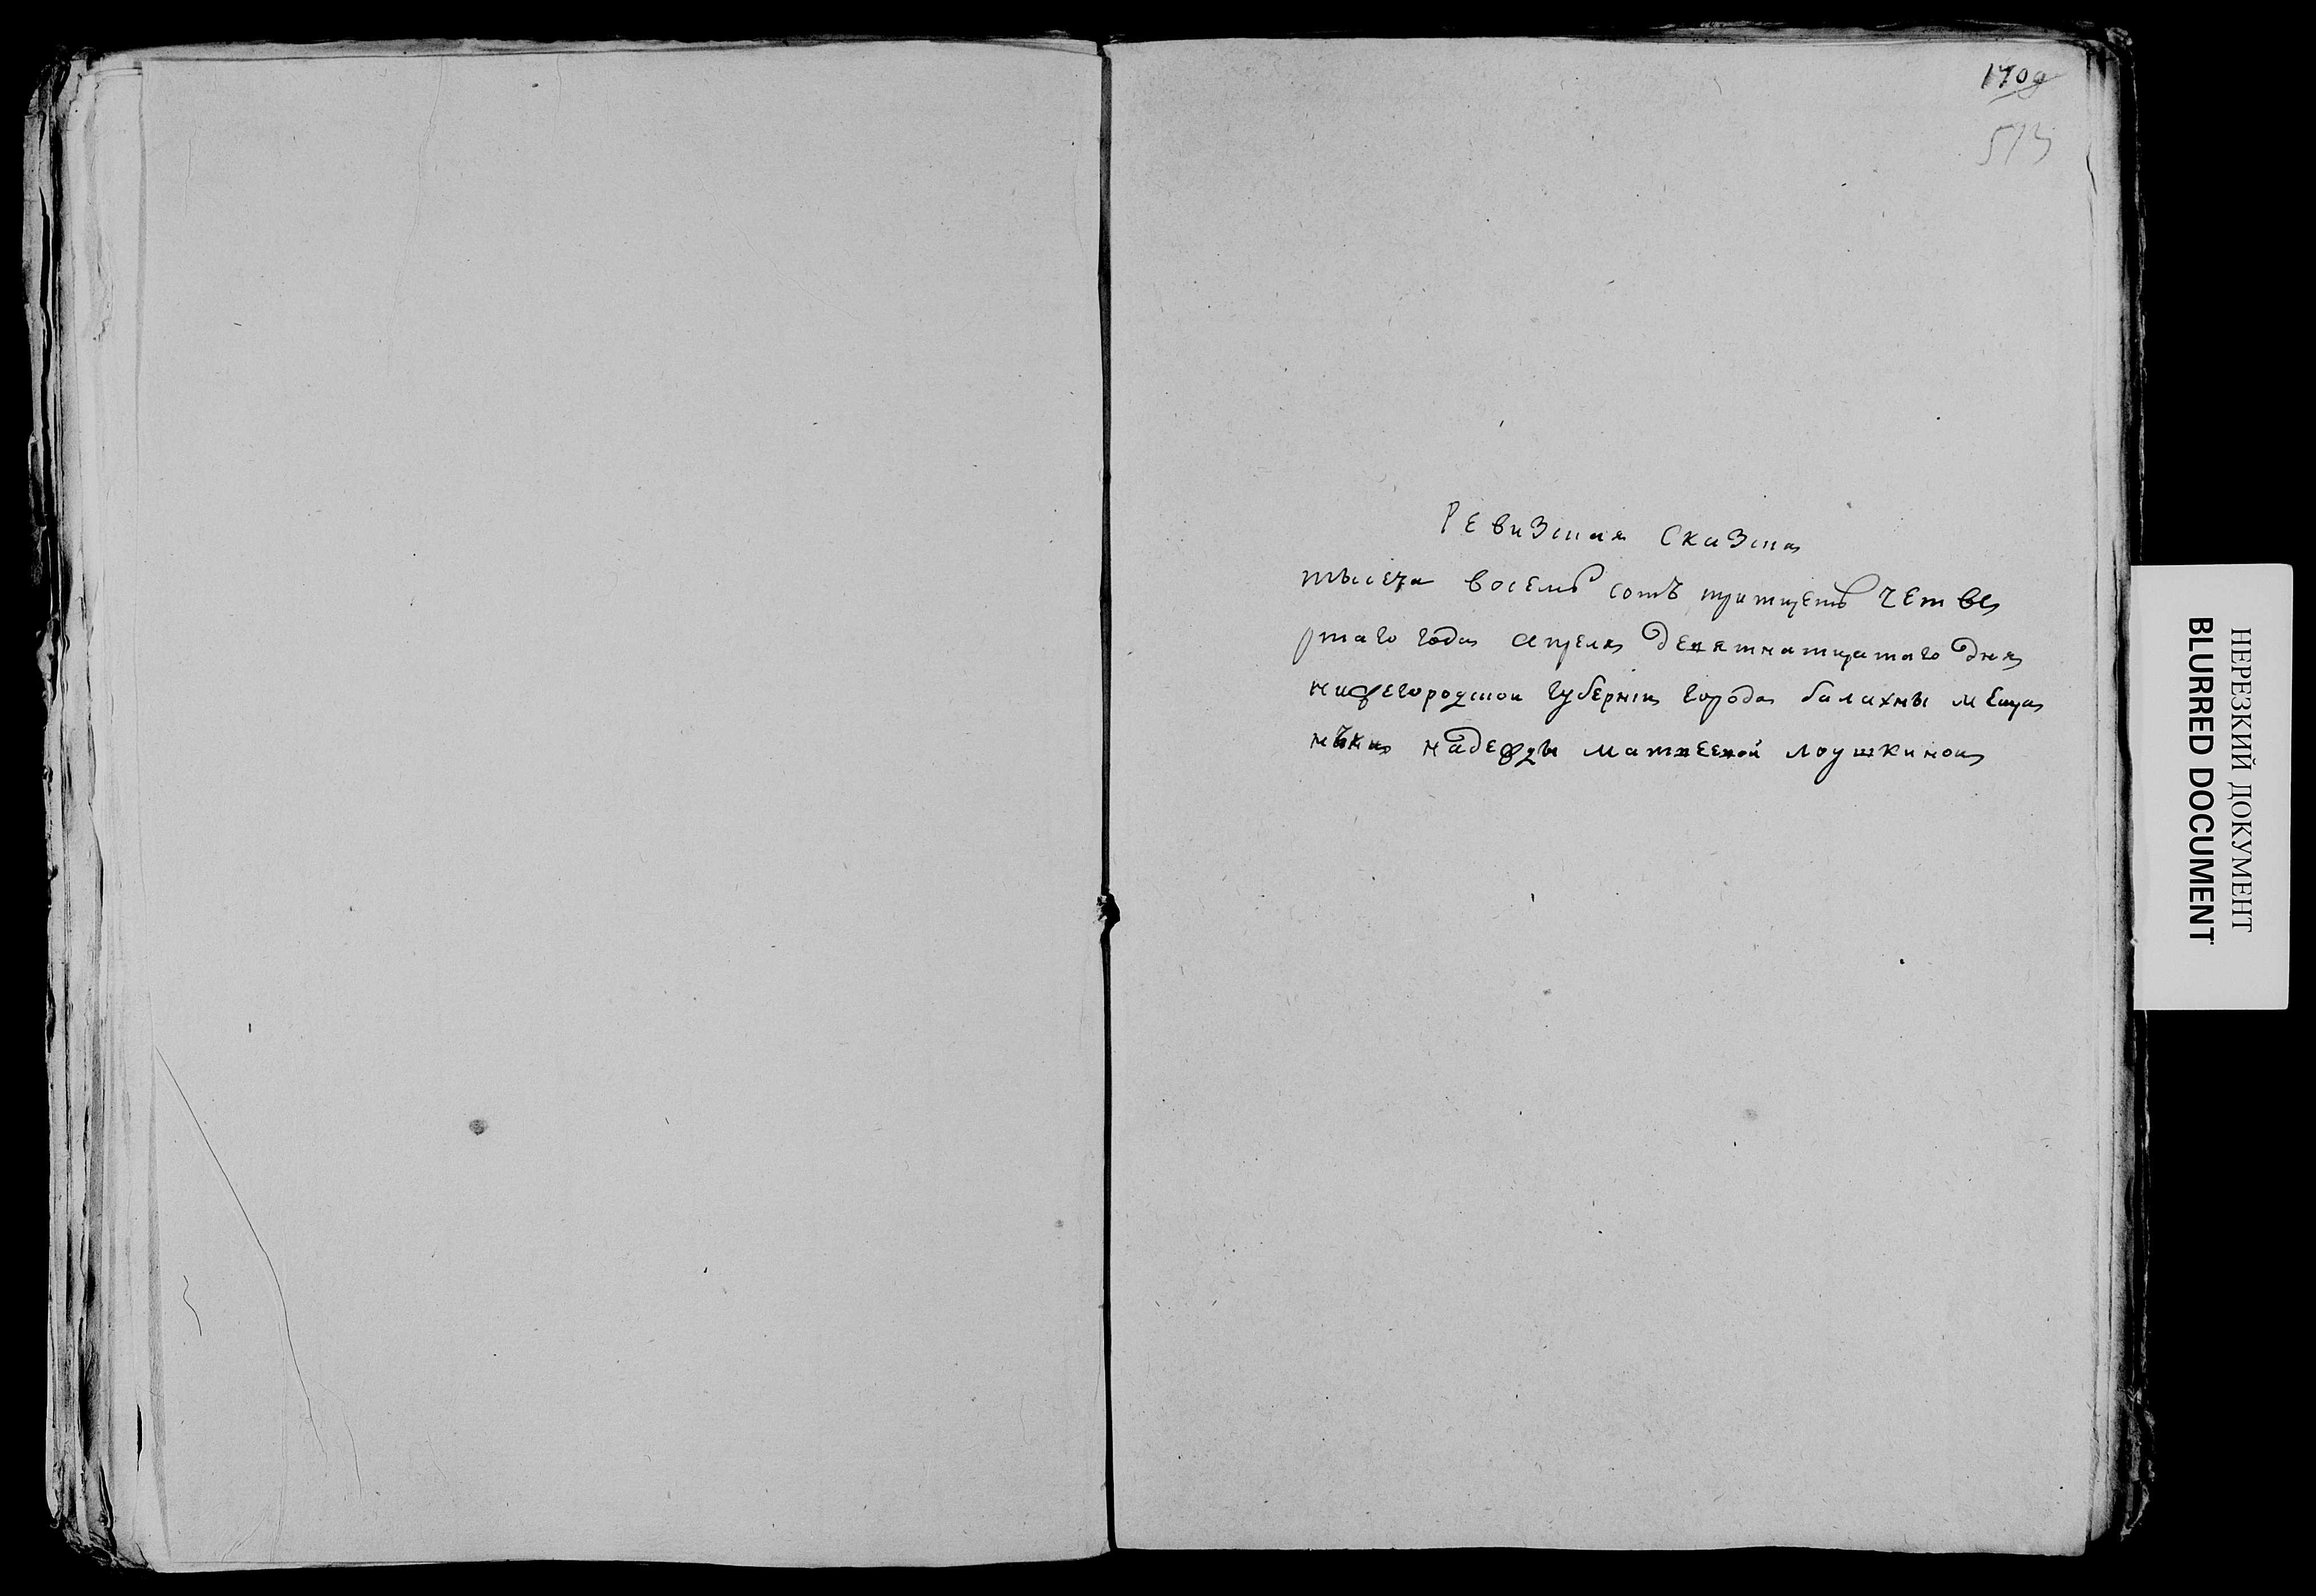 1709
513
Ревизская Сказка
тысеча восемь сотъ тритцеть четве
ртаго года апреля девятнатцатаго дня
нижегородской губернии города балахны мещан
нъки надежды матвеевой лоушкиной
НЕРЕЗКИЙ ДОКУМЕНТ
BLURRED DOCUMENT